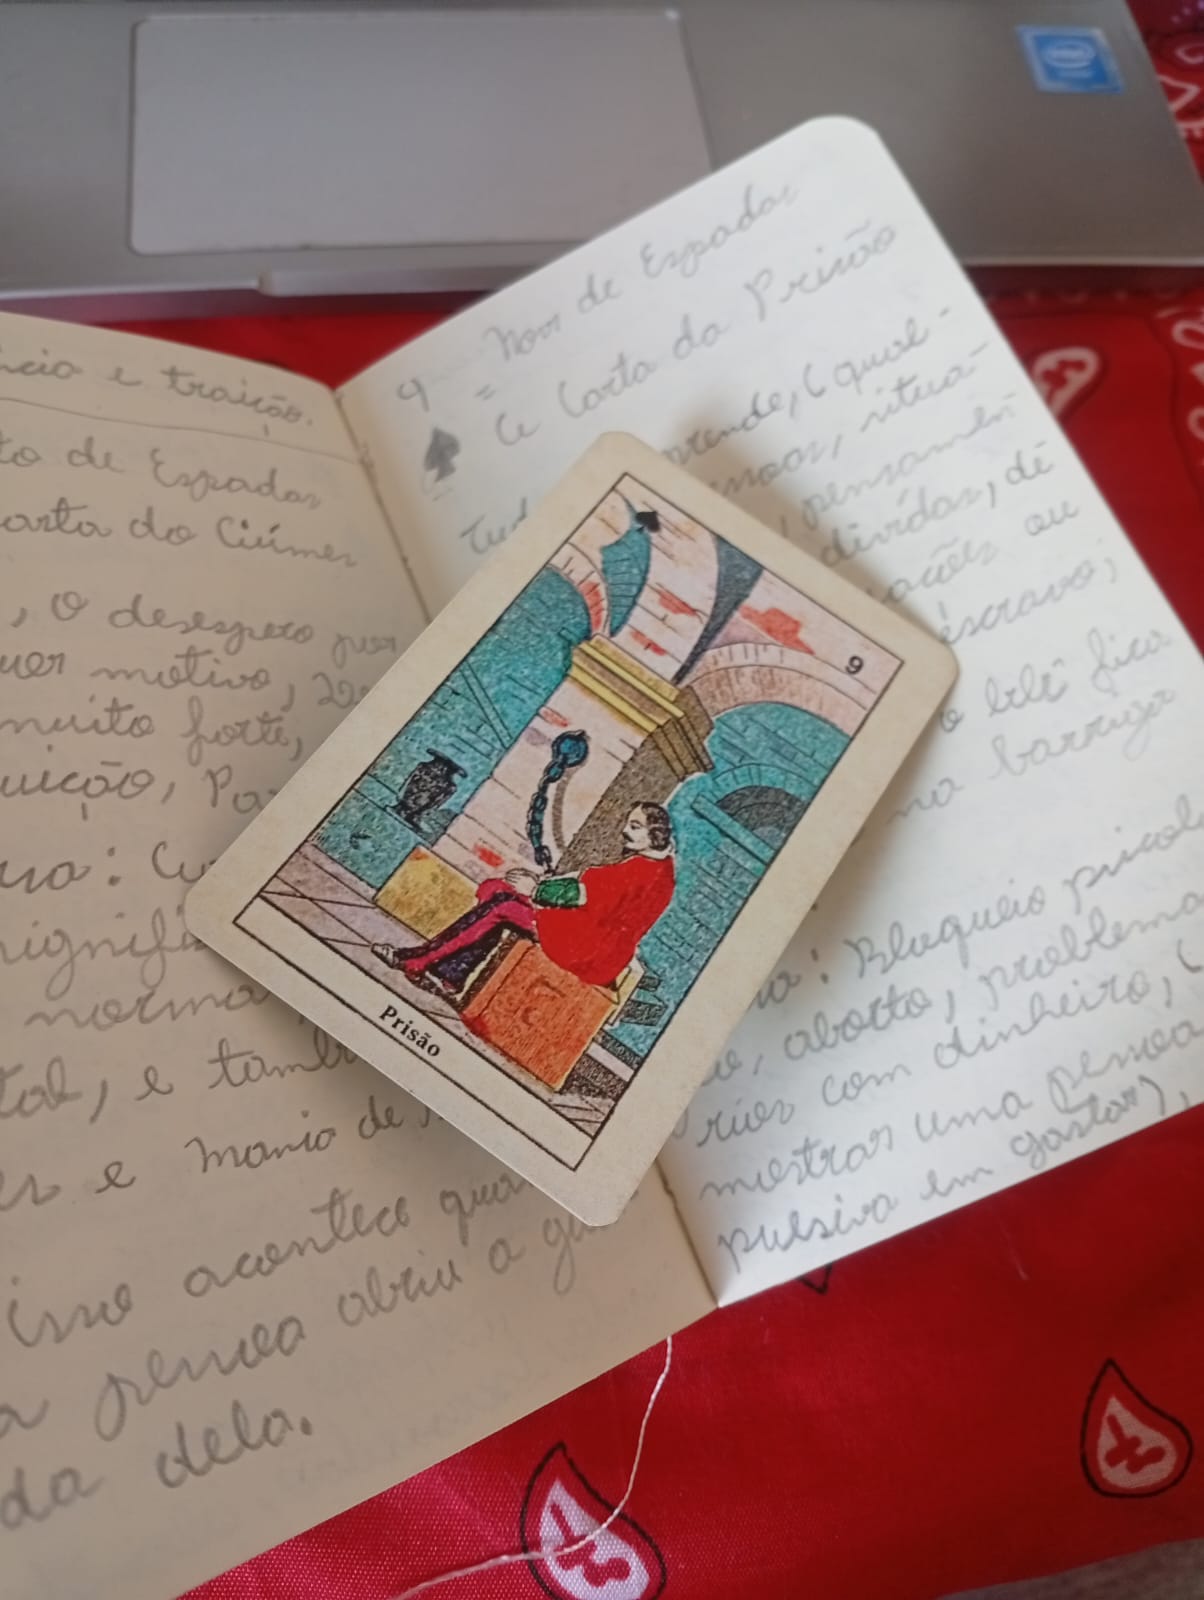 intel
cia e traição.
to de Espadas
arta do Ciúmes
, o desespero por
uer motivo,
muito forte,
uição, Pa
ura: Cu
signifi
norma
tal, e també
es e mania de
isso acontece qua
a pessoa abriu a gu
da dela.
9 = Nove de Espadas
Carta da Prisão
Tud prende, (qual-
ssoas, situa-
, pensamen
dívidas, de
ações ou
escravo;
o bebê fica
na barriga
: Bloqueio psicol
, aborto, problema
com dinheiro, (
mostrar uma pessoa
pulsiva em gastar),
9
Prisão